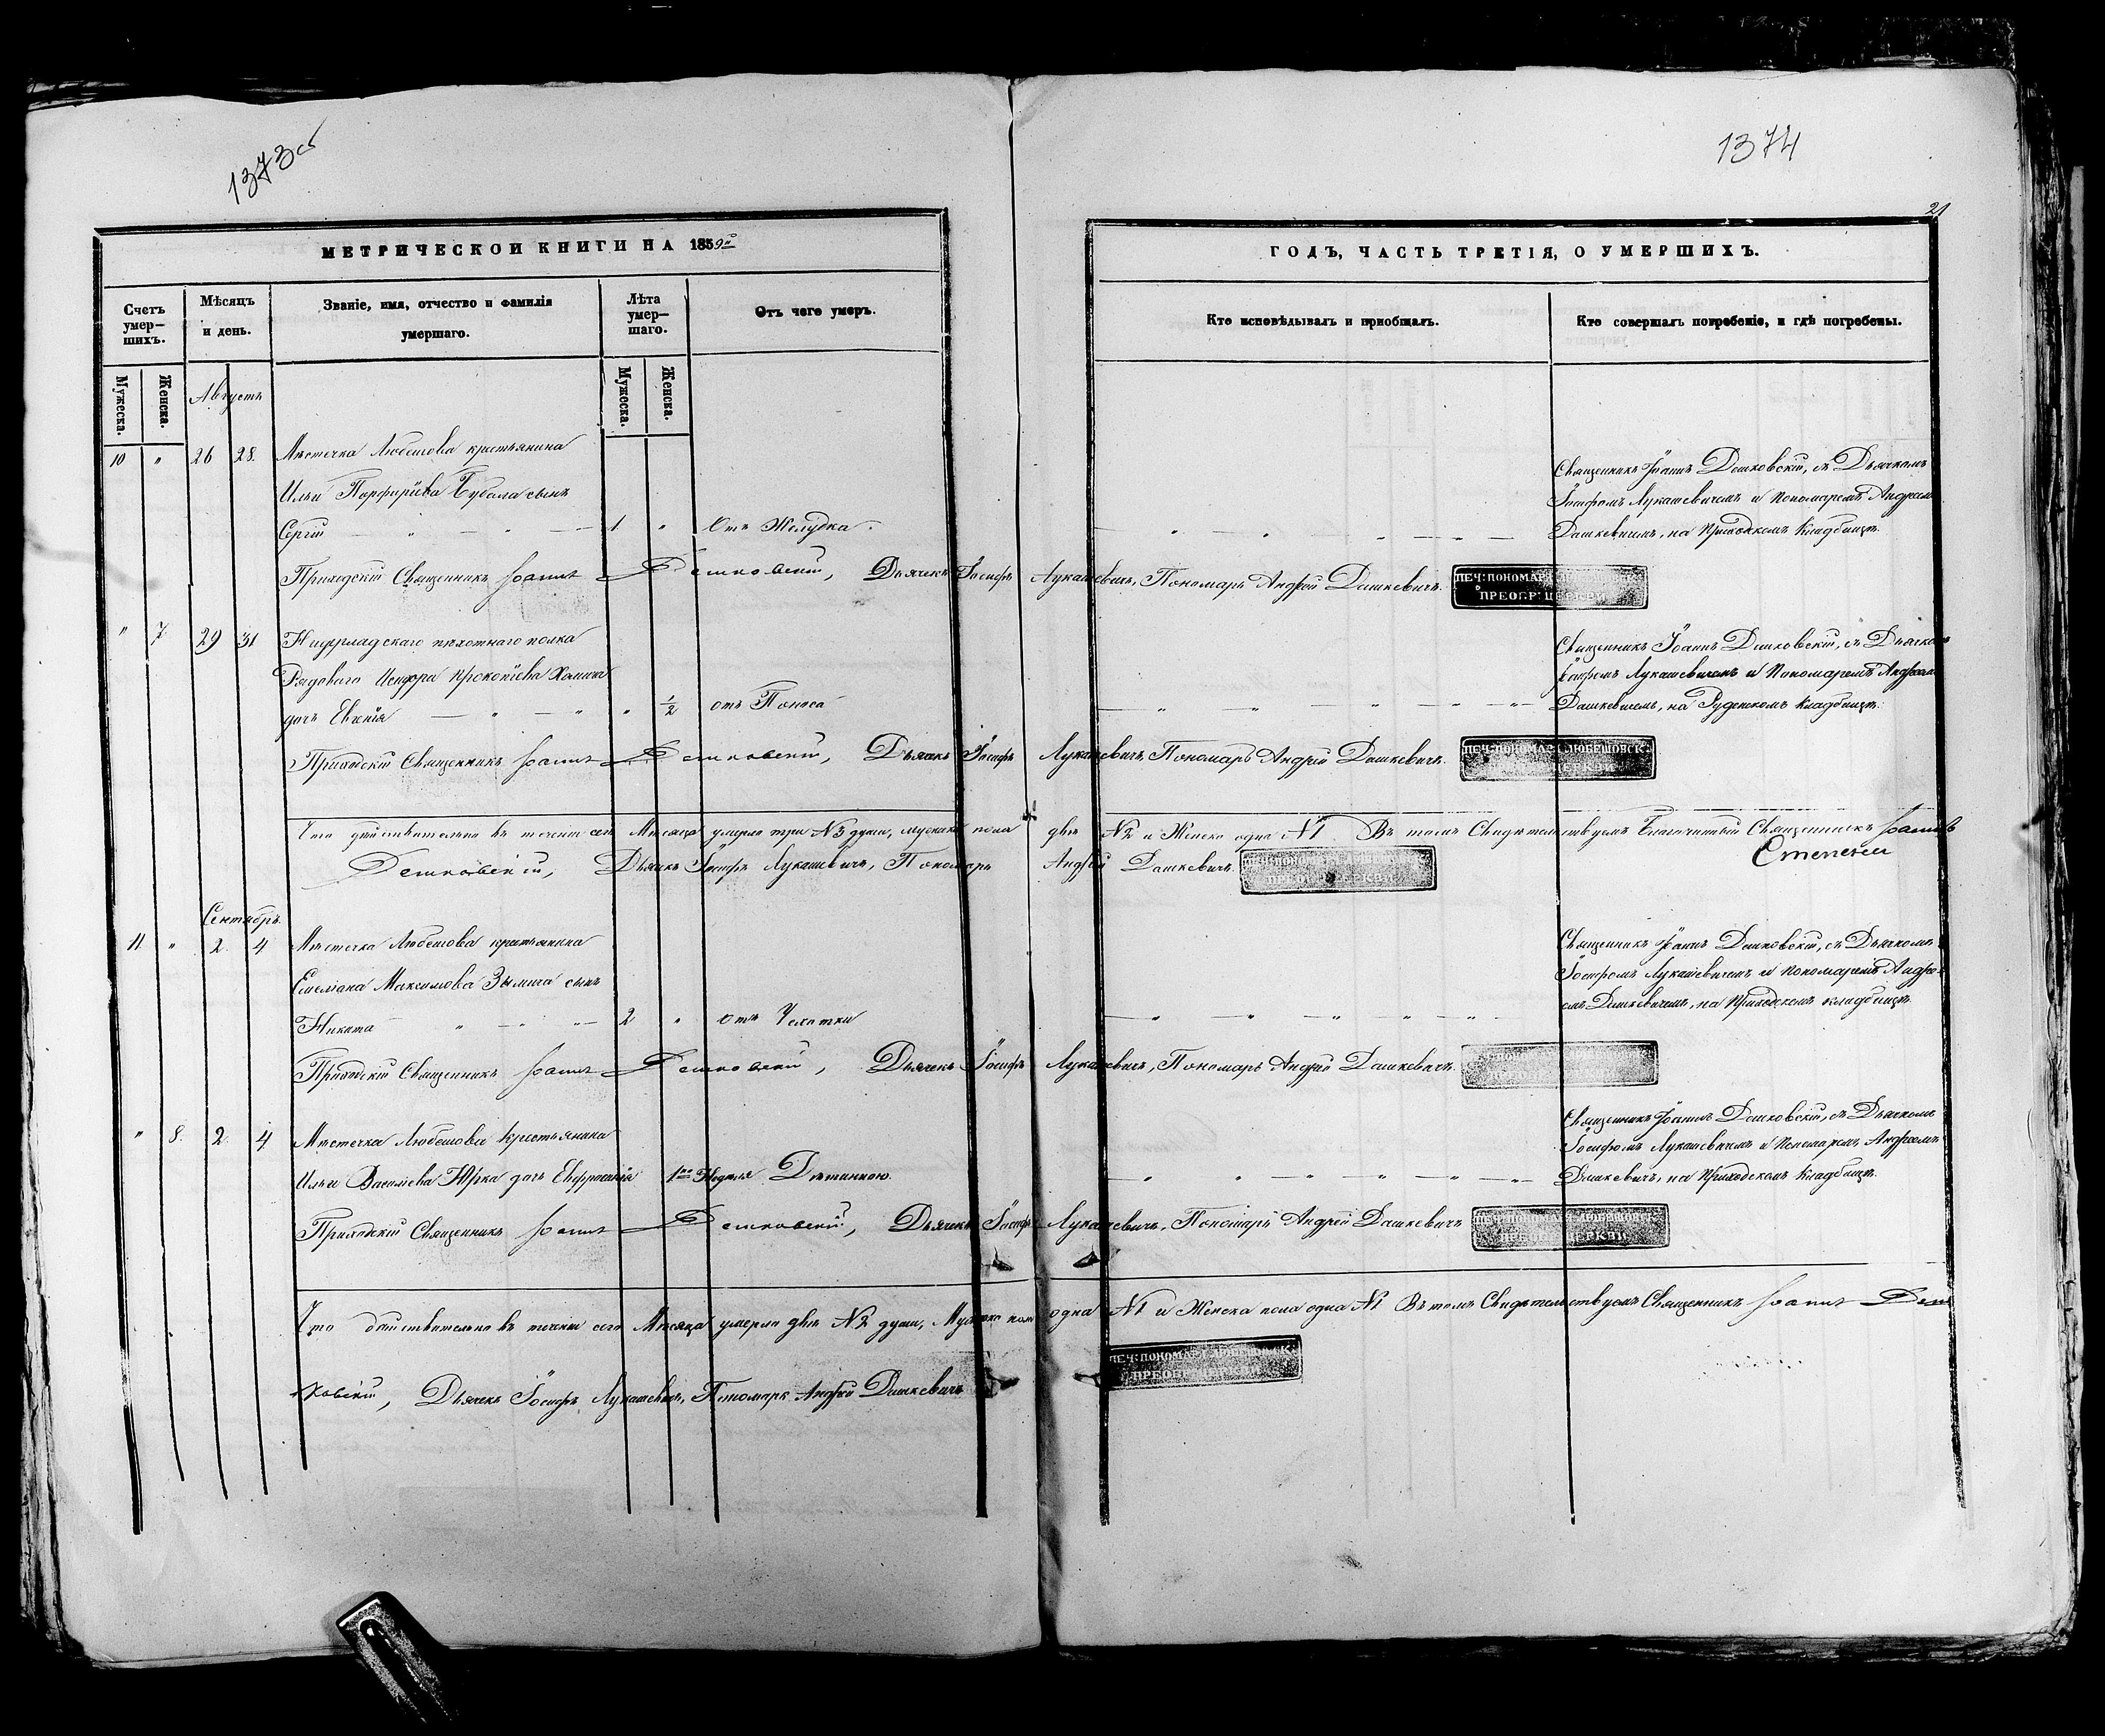 1373об
МЕТРИЧЕСКОЙ КНИГИ НА 1859й
Счетъ умер-шихъ.
Мѣсяцъ и день.
Званіе, имя, отчество и фамилія умершаго.
Лѣта умер-шаго.
Отъ чего умеръ.
Мужеска.
Женска.
Мужеска.
Женска.
Августъ
10 " 26 28. Мѣстечка Любешова крестьянина
Ильи Порфиріева Бубала сынъ
Сергій — " — " — 1. " Отъ Желудка.
Приходскій Священникъ Іоаннъ Дешковскій, Дьячекъ Іосифъ
" 7. 29 31 Нидерладскаго пѣхотнаго полка
Рядоваго Исидора Прокопіева Хомича
дочь Евгенія — " — " " 1/2 отъ Поноса
Приходскій Священникъ Іоаннъ Дешковскій, Дьячекъ Іосифъ
Что дѣйствительно въ теченіи сего Мѣсяца умерло три №3 души, мужеска пола
Дешковскій, Дьячекъ Іосифъ Лукашевичъ, Пономарь
Сентябрь
11. " 2. 4 Мѣстечка Любешова крестьянина
Емеліана Максимова Зымича сынъ
Никита — " — " — 2 " отъ Чахотки
Приходскій Священникъ Іоаннъ Дешковскій, Дьячекъ Іосифъ
" 8. 2. 4 Мѣстечка Любешова Крестьянина
Ильи Василіева Юрка дочь Евфросинія 1на Недѣля Дѣтинною.
Приходскій Священникъ Іоаннъ Дешковскій, Дьячекъ Іосифъ
Что дѣйствительно въ теченіи сего Мѣсяца умерло двѣ №2 души, Мужеска пола
ковскій, Дьячекъ Іосифъ Лукашевичъ, Пономарь Андрей Дашкевичъ
1374
21
ГОДЪ, ЧАСТЬ ТРЕТІЯ, О УМЕРШИХЪ.
Кто исповѣдывалъ и пріобщалъ.
Кто совершалъ погребеніе, и гдѣ погребены.
Священникъ Іоаннъ Дешковскій, съ Дьячкомъ
Іосифомъ Лукашевичемъ и Пономаремъ Андреемъ
Дашкевичемъ, на Приходскомъ Кладбищѣ.
Лукашевичъ, Пономарь Андрей Дашкевичъ.
ПЕЧ: ПОНОМАР: ЛЮБЕШОВСК:
ПРЕОБР: ЦЕРКВИ
Священникъ Іоаннъ Дешковскій, съ Дьячкомъ
Іосифомъ Лукашевичемъ и Пономаремъ Андреемъ
Дашкевичемъ, на Кладбищѣ.
Лукашевичъ, Пономарь Андрей Дашкевичъ.
ПЕЧ: ПОНОМАР: ЛЮБЕШОВСК:
ЦЕРКВИ
двѣ №2 и Женска одна №1. Въ томъ Свидѣтельствуемъ Благочинный Священникъ Іоаннъ
Андрей Дашкевичъ.
ПЕЧ: ПОНОМАР: ЛЮБЕШОВСК:
ПРЕОБР: ЦЕРКВИ
Священникъ Іоаннъ Дешковскій, съ Дьячкомъ
Іосифомъ Лукашевичемъ и Пономаремъ Андре-
емъ Дашкевичемъ, на Приходскомъ кладбищѣ.
Лукашевичъ, Пономарь Андрей Дашкевичъ.
Священникъ Іоаннъ Дешковскій, съ Дьячкомъ
Іосифомъ Лукашевичемъ и Пономаремъ Андреемъ
Дашкевичъ, на Приходскомъ Кладбищѣ.
Лукашевичъ, Пономарь Андрей Дашкевичъ
ПЕЧ: ПОНОМАР: ЛЮБЕШОВСК:
ПРЕОБР: ЦЕРКВИ
одна №1 и Женска пола одна №1 Въ томъ Свидѣтельствуемъ Священникъ Іоаннъ Деш
ПЕЧ: ПОНОМАР: ЛЮБЕШОВСК:
ПРЕОБР: ЦЕРКВИ